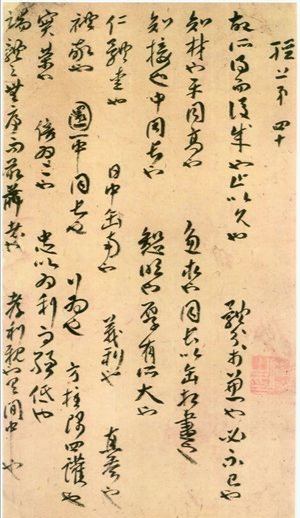 經上第四十
故所得而後成也 止以久也 體分於兼也 必不已也
知材也 平同高也 慮求也 同長以正相盡也
知接也 中同長也 恕明也 厚有所大也
仁體愛也 日中正南也 義利也 直參也
禮敬也 圜一中同長也 行為也 方柱隅四讙也
實榮也 倍為二也 忠以為利而強低也
端體之無序而最前者也 孝利親也 間中也